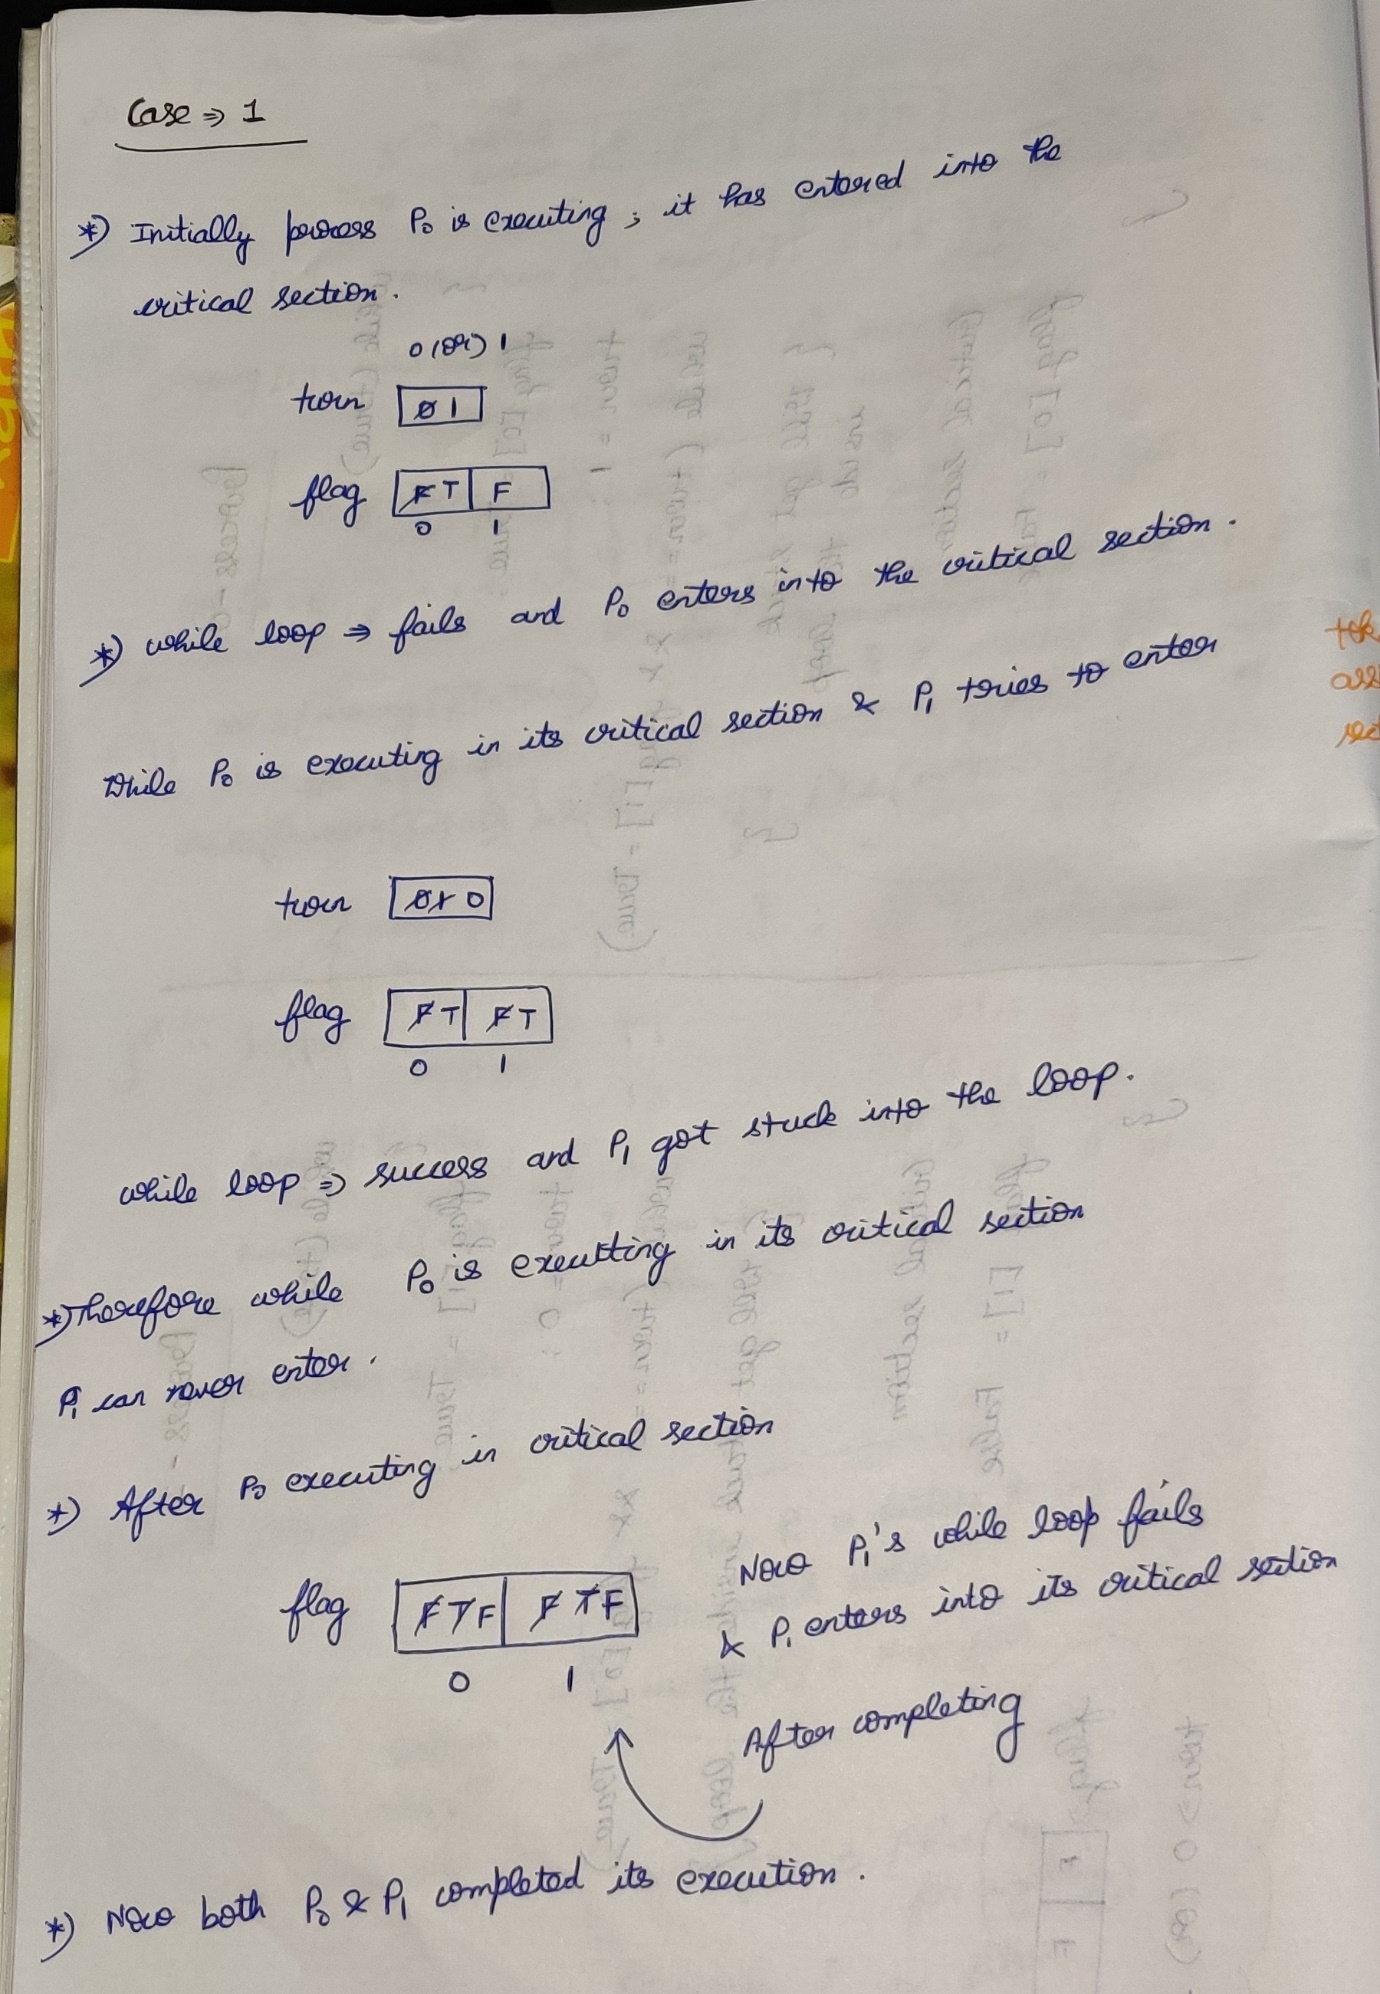 Case ⇒ 1
*) Initially process P₀ is executing ; it has entered into the
critical section.
0 (or) 1
turn 0 1
flag F T F
0 1
*) while loop ⇒ fails and P₀ enters into the critical section.
While P₀ is executing in its critical section & P₁ tries to enter
turn 0 1 0
flag F T F T
0 1
while loop ⇒ success and P₁ got stuck into the loop.
*) Therefore while P₀ is executting in its critical section
P₁ can never enter.
*) After P₀ executing in critical section
Now P₁'s while loop fails
flag F T F F T F
& P₁ enters into its critical section
0 1
After completing
*) Now both P₀ & P₁ completed its execution.